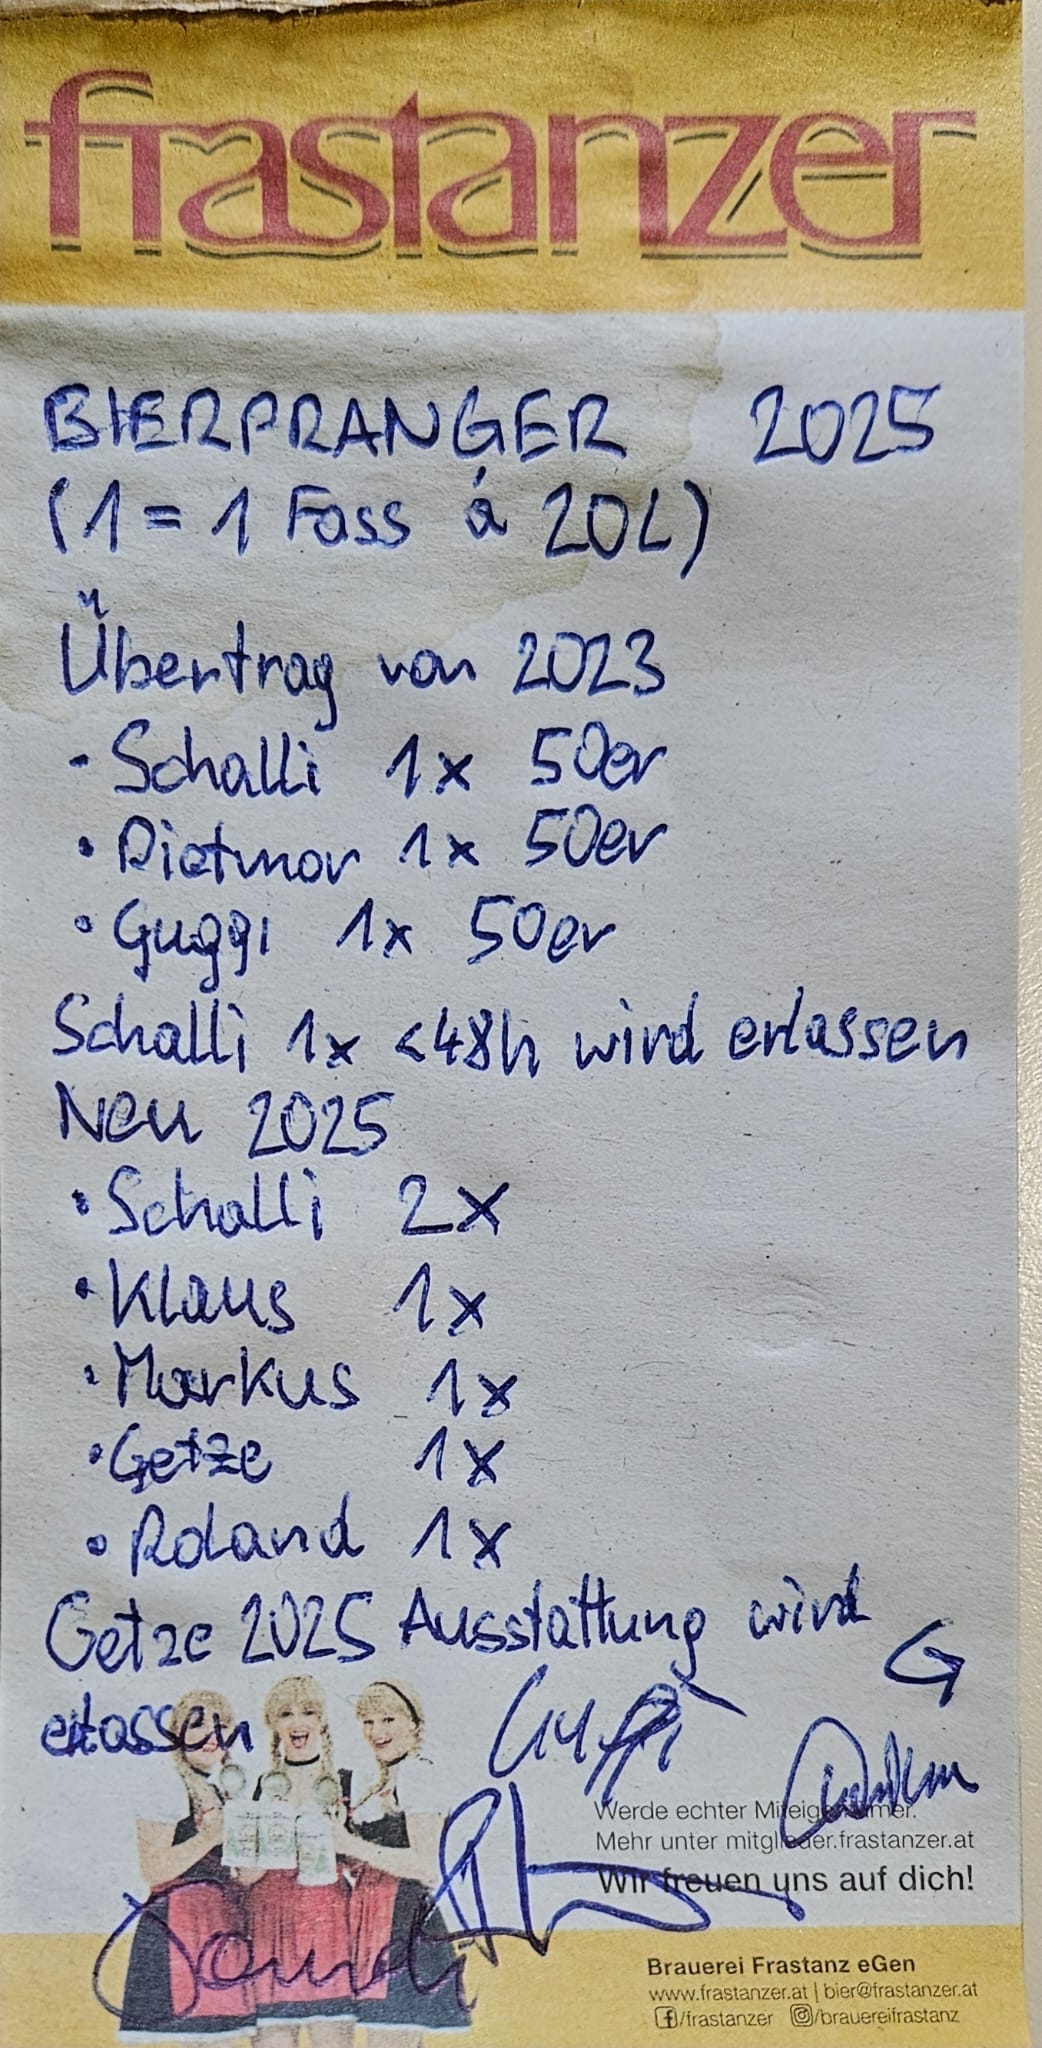 frastanzer
BIERPRANGER 2025
(1 = 1 Fass á 20L)
Übertrag von 2023
· Schalli 1x 50er
· Dietmar 1x 50er
· Guggi 1x 50er
Schalli 1x <48h wird erlassen
Neu 2025
· Schalli 2x
· Klaus 1x
· Markus 1x
· Getze 1x
· Roland 1x
Getze 2025 Ausstattung wird
erlassen
G
Werde echter Miteigentümer.
Mehr unter mitglieder.frastanzer.at
Wir freuen uns auf dich!
Brauerei Frastanz eGen
www.frastanzer.at | bier@frastanzer.at
/frastanzer /brauereifrastanz